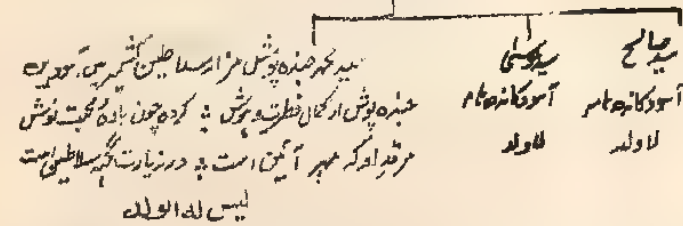 سید صالح
آسودگانده مامر
لاولد
سید موسیٰ
آسودگانده مامر
لاولد
سید محمد جنده پوش مزار سلاطین کشمیر میں، گودیرہ
جنده پوش از کمال فطرت و ہوش ÷ کرده چون بادهٔ محبت نوش
مرقد او کہ مہر آئین است ÷ در زیارت گہہ سلاطین است
لیس له الولد